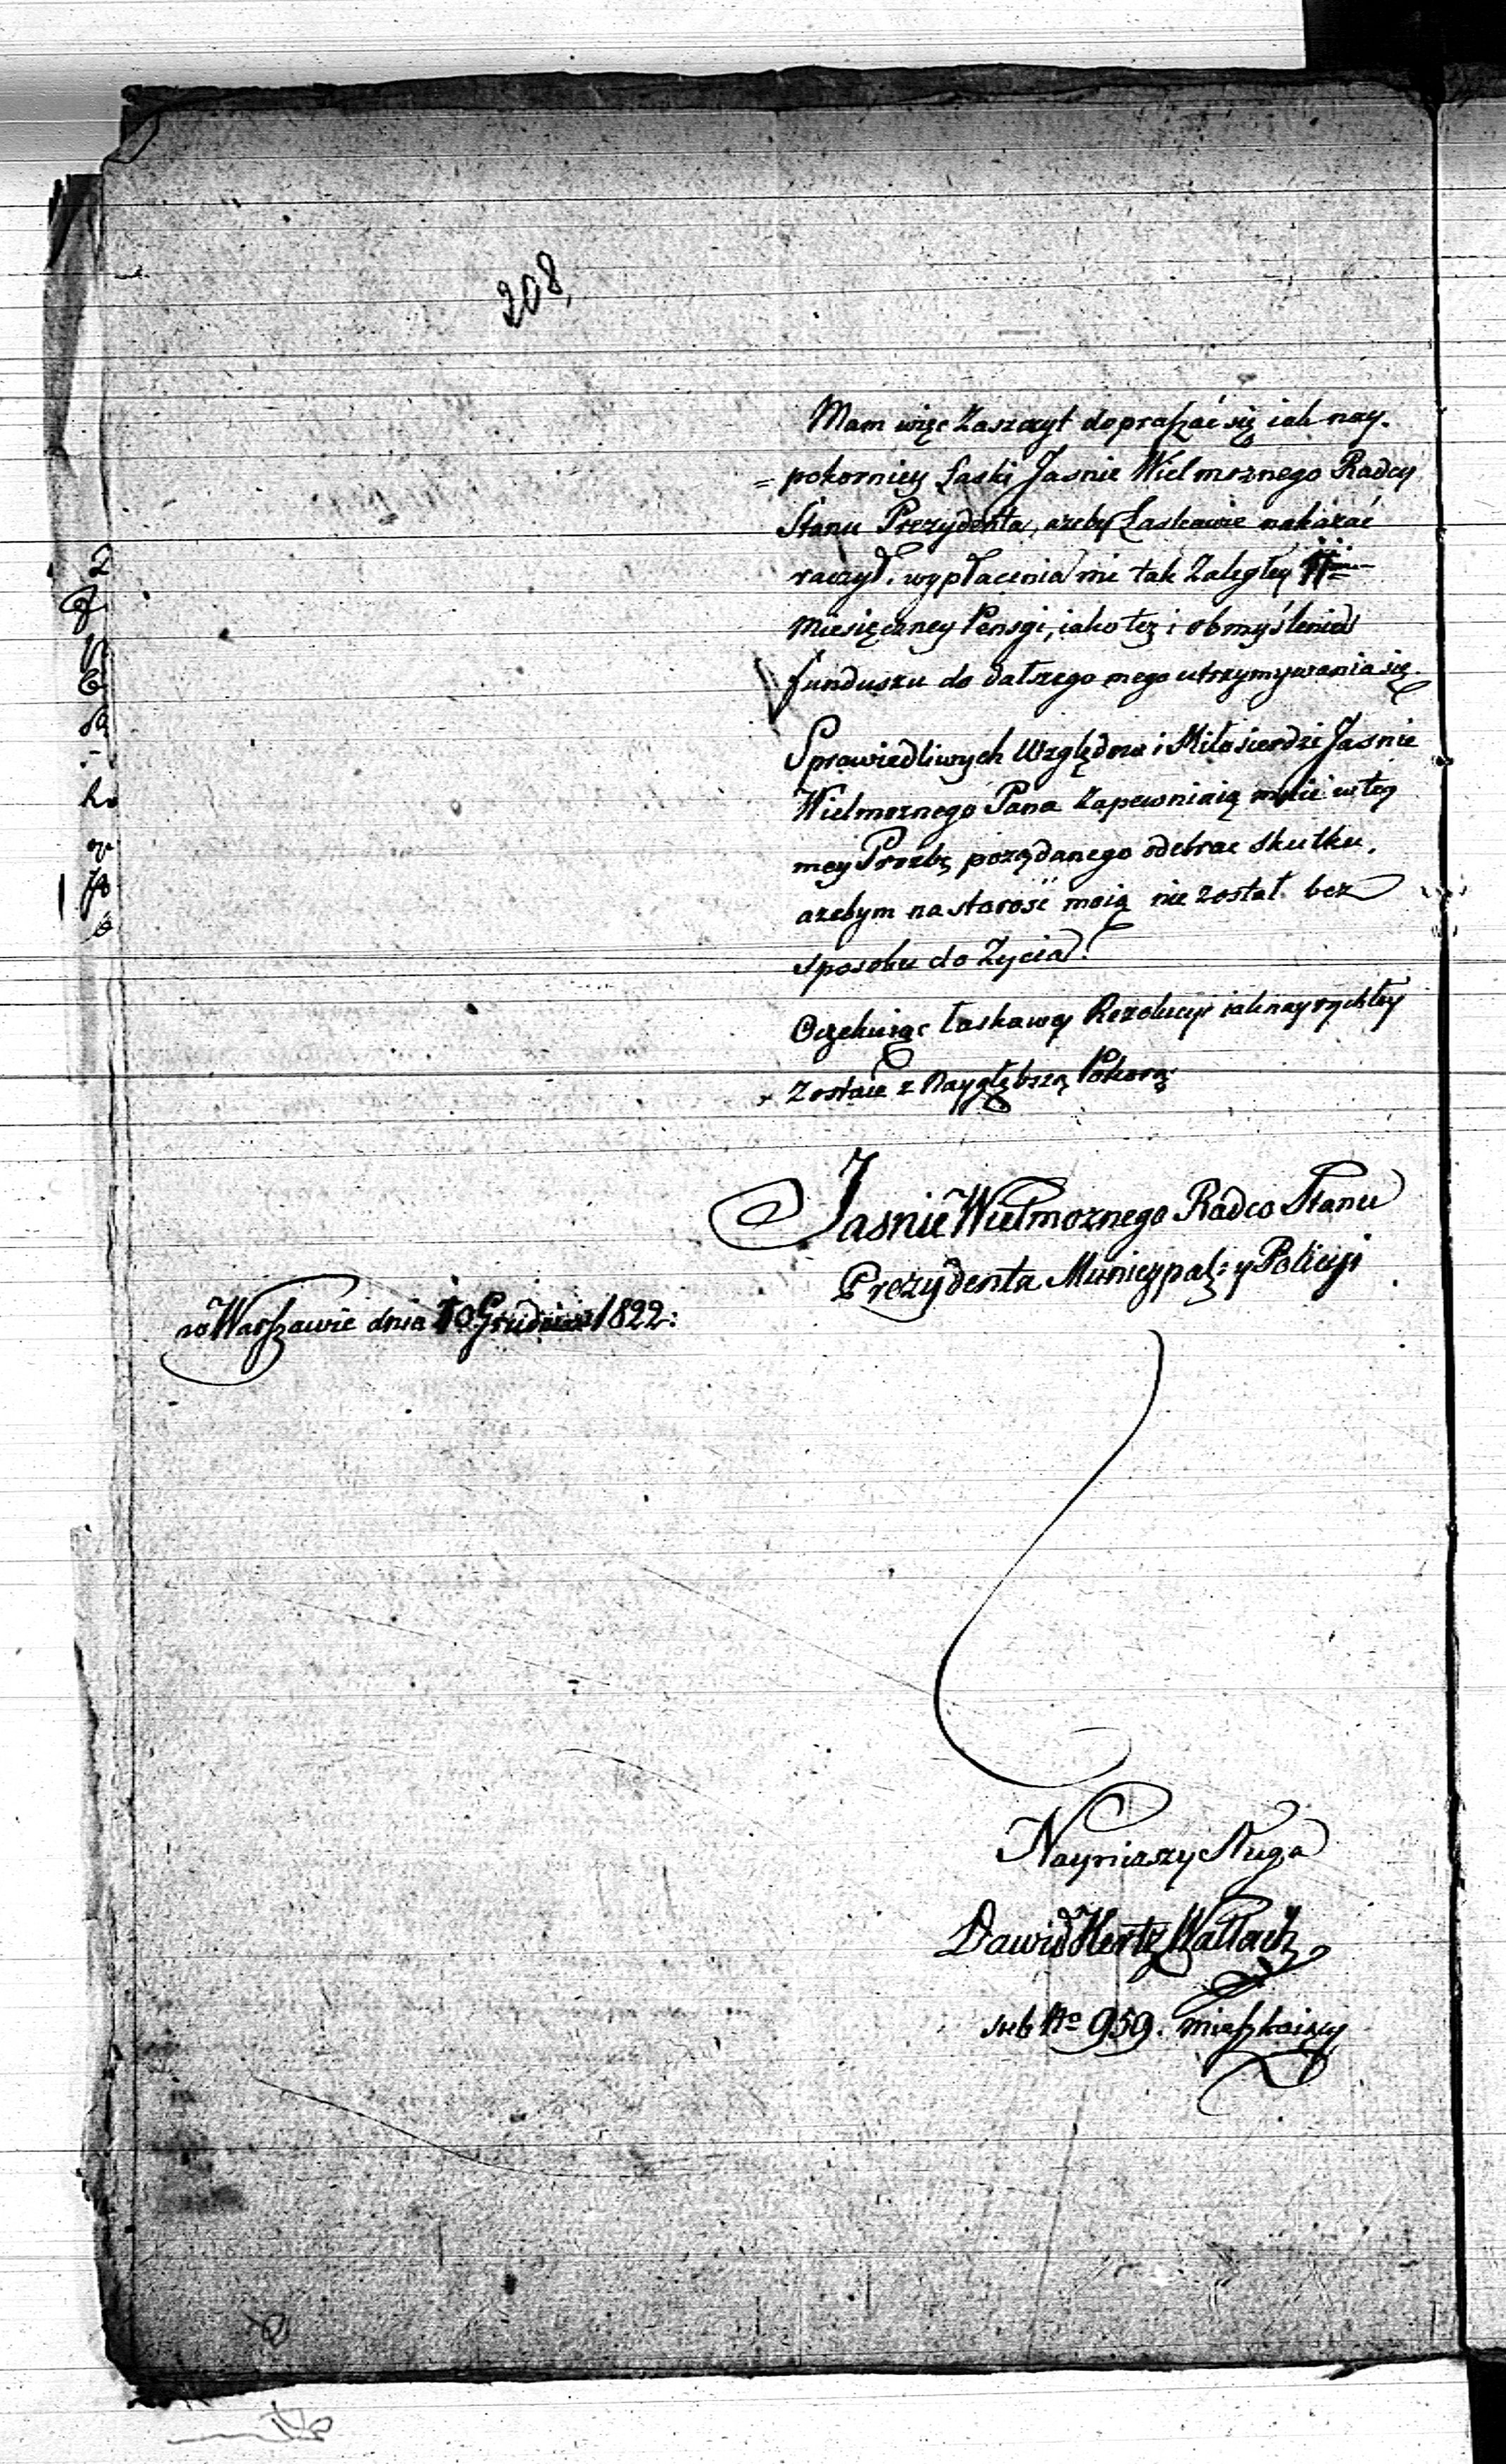 208,
Mam więc Zaszczyt dopraszać się iak nay.
= pokorniey Łaski Jasnie Wielmoznego Radcy
Stanu Prezydenta, azeby Łaskawie nakazać
raczył, wypłacenia mi tak Zaległey
Miesięczney Pensyi, iako tez i obmyślenia
funduszu do dalszego mego utrzymywania się.
Sprawiedliwych Względow i Miłosierdzi Jasnie
Wielmoznego Pana Zapewniaią mnie w tey
mey Prozbę pożądanego odebrac skutku,
azebym na starosć moią nie został bez
sposobu do Zycia.
Oczekuiąc łaskawey Rezolucyi iak nayrychley
Zostaie z Naygłębszą Pokorą
Jasnie Wielmoznego Radco Stanu
Prezydenta Municypal: y Policyi
w Warszawie dnia 10 Grudnia 1822:
Nayniższy Sługa
Dawid Hertz Wallach
sub No 959. mieszkaiący